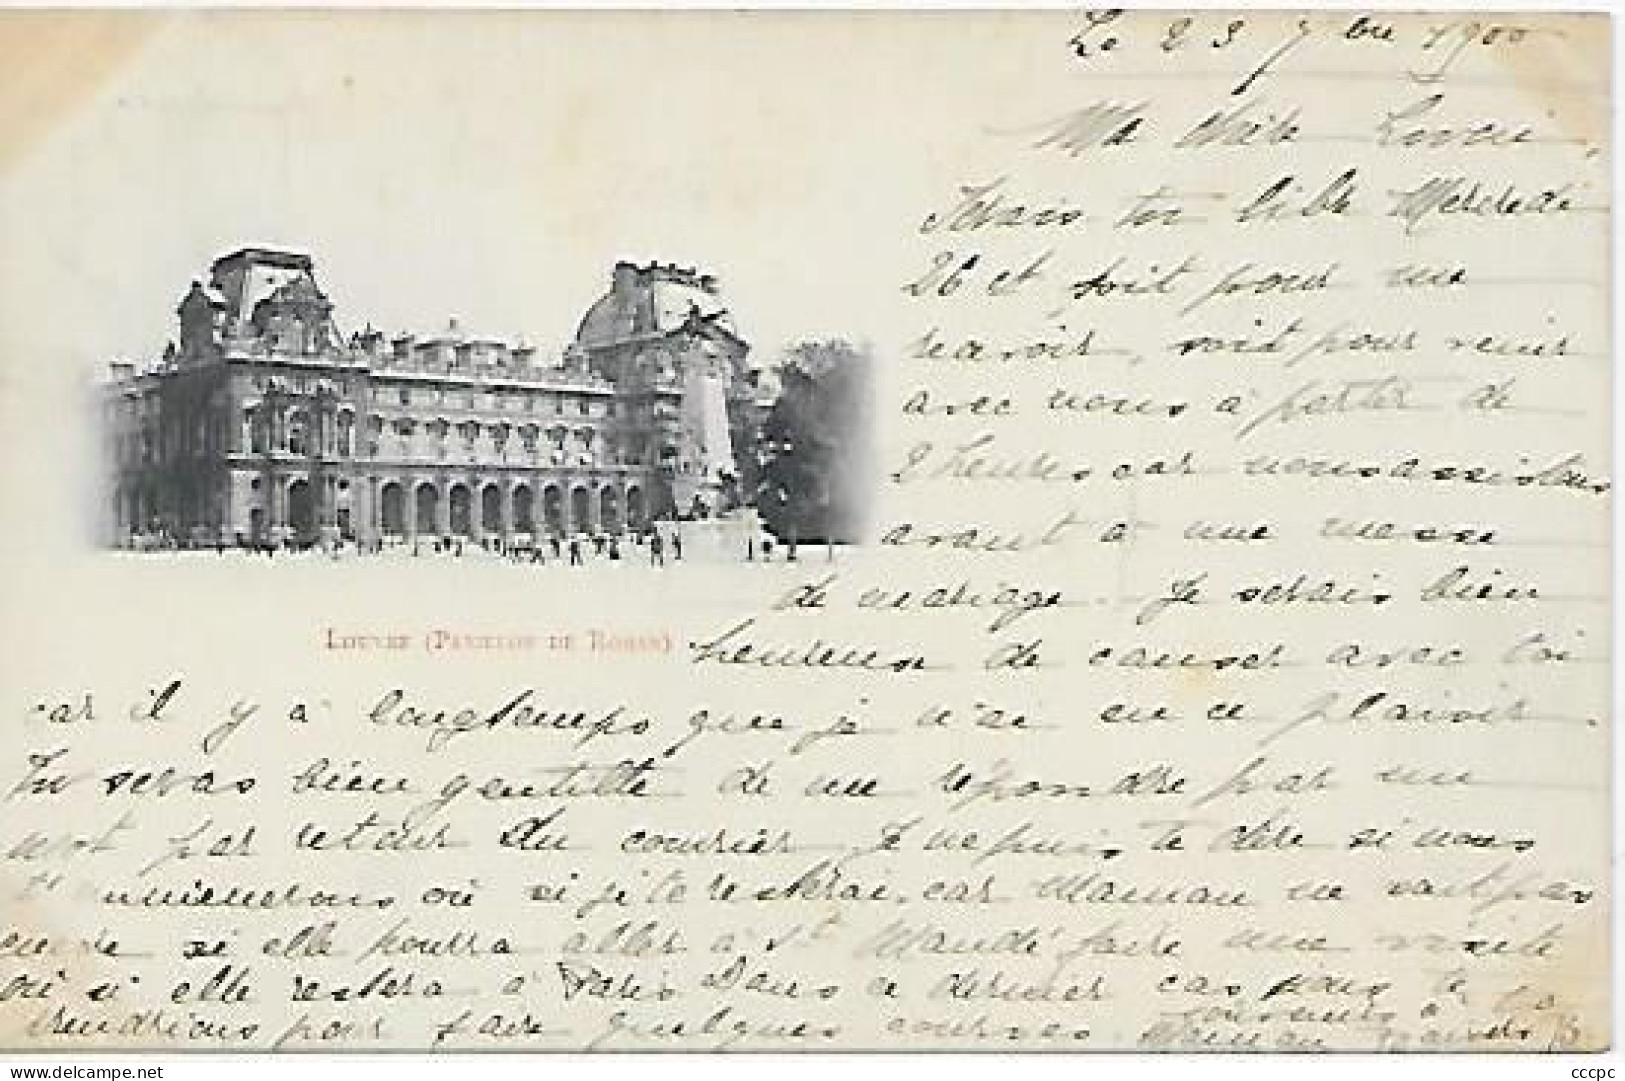 Le 23 7bre 1900
Ma chère
Serais tu libre Mercredi
26 ct soit pour me
recevoir, soit pour venir
avec nous à partir de
2 heures car nous assistons
avant à une messe
de mariage. Je serais bien
LOUVRE (PAVILLON DE ROHAN)
heureuse de causer avec toi
car il y a longtemps que je n'ai eu ce plaisir.
Tu seras bien gentille de me répondre par un
mot par retour du courrier. Je ne puis te dire si nous
t'emmènerons où si je te resterai, car Maman ne sait pas
encore si elle pourra aller à St Mandé faire une visite
où si elle restera à Paris Dans ce dernier cas nous te
prendrions pour faire quelques courses. Maman
cccpc
Delcampe.net